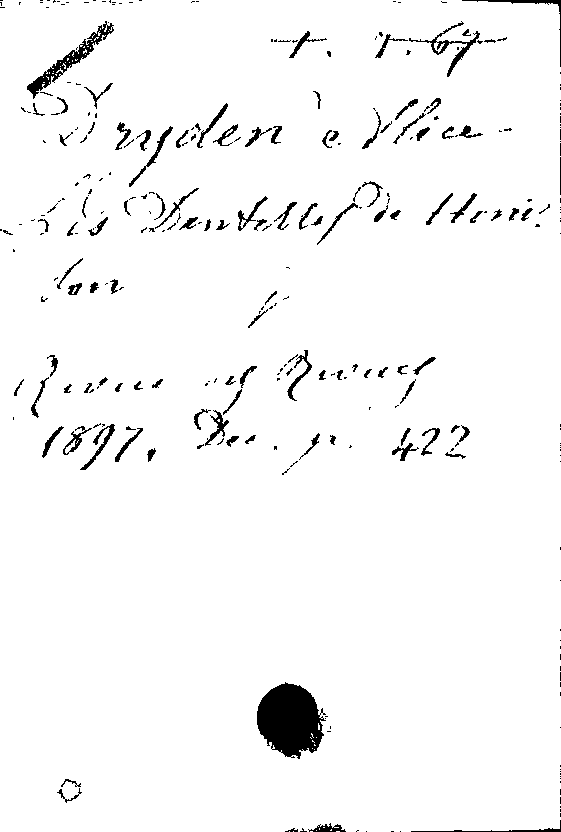 Dryden Alice
Les Dentelles de Honi-
ton
Revue des Revues
1897. Dec. p. 422